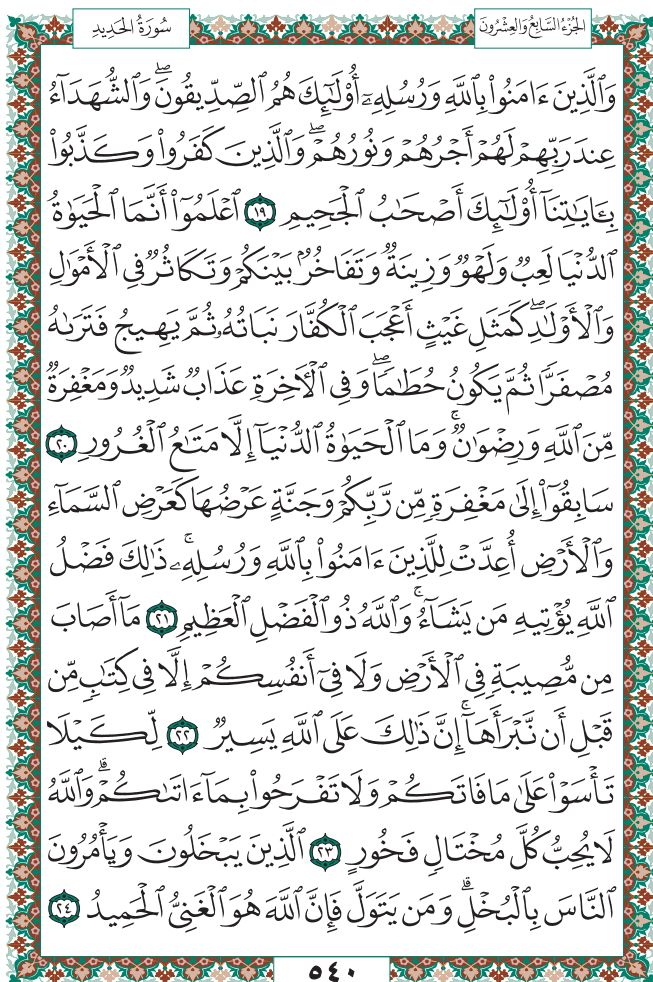 الجُزْءُ السَّابِعُ وَالعِشْرُونَ
سُورَةُ الحَدِيدِ
وَٱلَّذِينَ ءَامَنُوا۟ بِٱللَّهِ وَرُسُلِهِۦٓ أُو۟لَٰٓئِكَ هُمُ ٱلصِّدِّيقُونَ ۖ وَٱلشُّهَدَآءُ
عِندَ رَبِّهِمْ لَهُمْ أَجْرُهُمْ وَنُورُهُمْ ۖ وَٱلَّذِينَ كَفَرُوا۟ وَكَذَّبُوا۟
بِـَٔايَٰتِنَآ أُو۟لَٰٓئِكَ أَصْحَٰبُ ٱلْجَحِيمِ ١٩ ٱعْلَمُوٓا۟ أَنَّمَا ٱلْحَيَوٰةُ
ٱلدُّنْيَا لَعِبٌ وَلَهْوٌ وَزِينَةٌ وَتَفَاخُرٌۢ بَيْنَكُمْ وَتَكَاثُرٌ فِى ٱلْأَمْوَٰلِ
وَٱلْأَوْلَٰدِ ۖ كَمَثَلِ غَيْثٍ أَعْجَبَ ٱلْكُفَّارَ نَبَاتُهُۥ ثُمَّ يَهِيجُ فَتَرَىٰهُ
مُصْفَرًّا ثُمَّ يَكُونُ حُطَٰمًا ۖ وَفِى ٱلْـَٔاخِرَةِ عَذَابٌ شَدِيدٌ وَمَغْفِرَةٌ
مِّنَ ٱللَّهِ وَرِضْوَٰنٌ ۚ وَمَا ٱلْحَيَوٰةُ ٱلدُّنْيَآ إِلَّا مَتَٰعُ ٱلْغُرُورِ ٢٠
سَابِقُوٓا۟ إِلَىٰ مَغْفِرَةٍ مِّن رَّبِّكُمْ وَجَنَّةٍ عَرْضُهَا كَعَرْضِ ٱلسَّمَآءِ
وَٱلْأَرْضِ أُعِدَّتْ لِلَّذِينَ ءَامَنُوا۟ بِٱللَّهِ وَرُسُلِهِۦ ۚ ذَٰلِكَ فَضْلُ
ٱللَّهِ يُؤْتِيهِ مَن يَشَآءُ ۚ وَٱللَّهُ ذُو ٱلْفَضْلِ ٱلْعَظِيمِ ٢١ مَآ أَصَابَ
مِن مُّصِيبَةٍ فِى ٱلْأَرْضِ وَلَا فِىٓ أَنفُسِكُمْ إِلَّا فِى كِتَٰبٍ مِّن
قَبْلِ أَن نَّبْرَأَهَآ ۚ إِنَّ ذَٰلِكَ عَلَى ٱللَّهِ يَسِيرٌ ٢٢ لِّكَيْلَا
تَأْسَوْا۟ عَلَىٰ مَا فَاتَكُمْ وَلَا تَفْرَحُوا۟ بِمَآ ءَاتَىٰكُمْ ۗ وَٱللَّهُ
لَا يُحِبُّ كُلَّ مُخْتَالٍ فَخُورٍ ٢٣ ٱلَّذِينَ يَبْخَلُونَ وَيَأْمُرُونَ
ٱلنَّاسَ بِٱلْبُخْلِ ۗ وَمَن يَتَوَلَّ فَإِنَّ ٱللَّهَ هُوَ ٱلْغَنِىُّ ٱلْحَمِيدُ ٢٤
٥٤٠